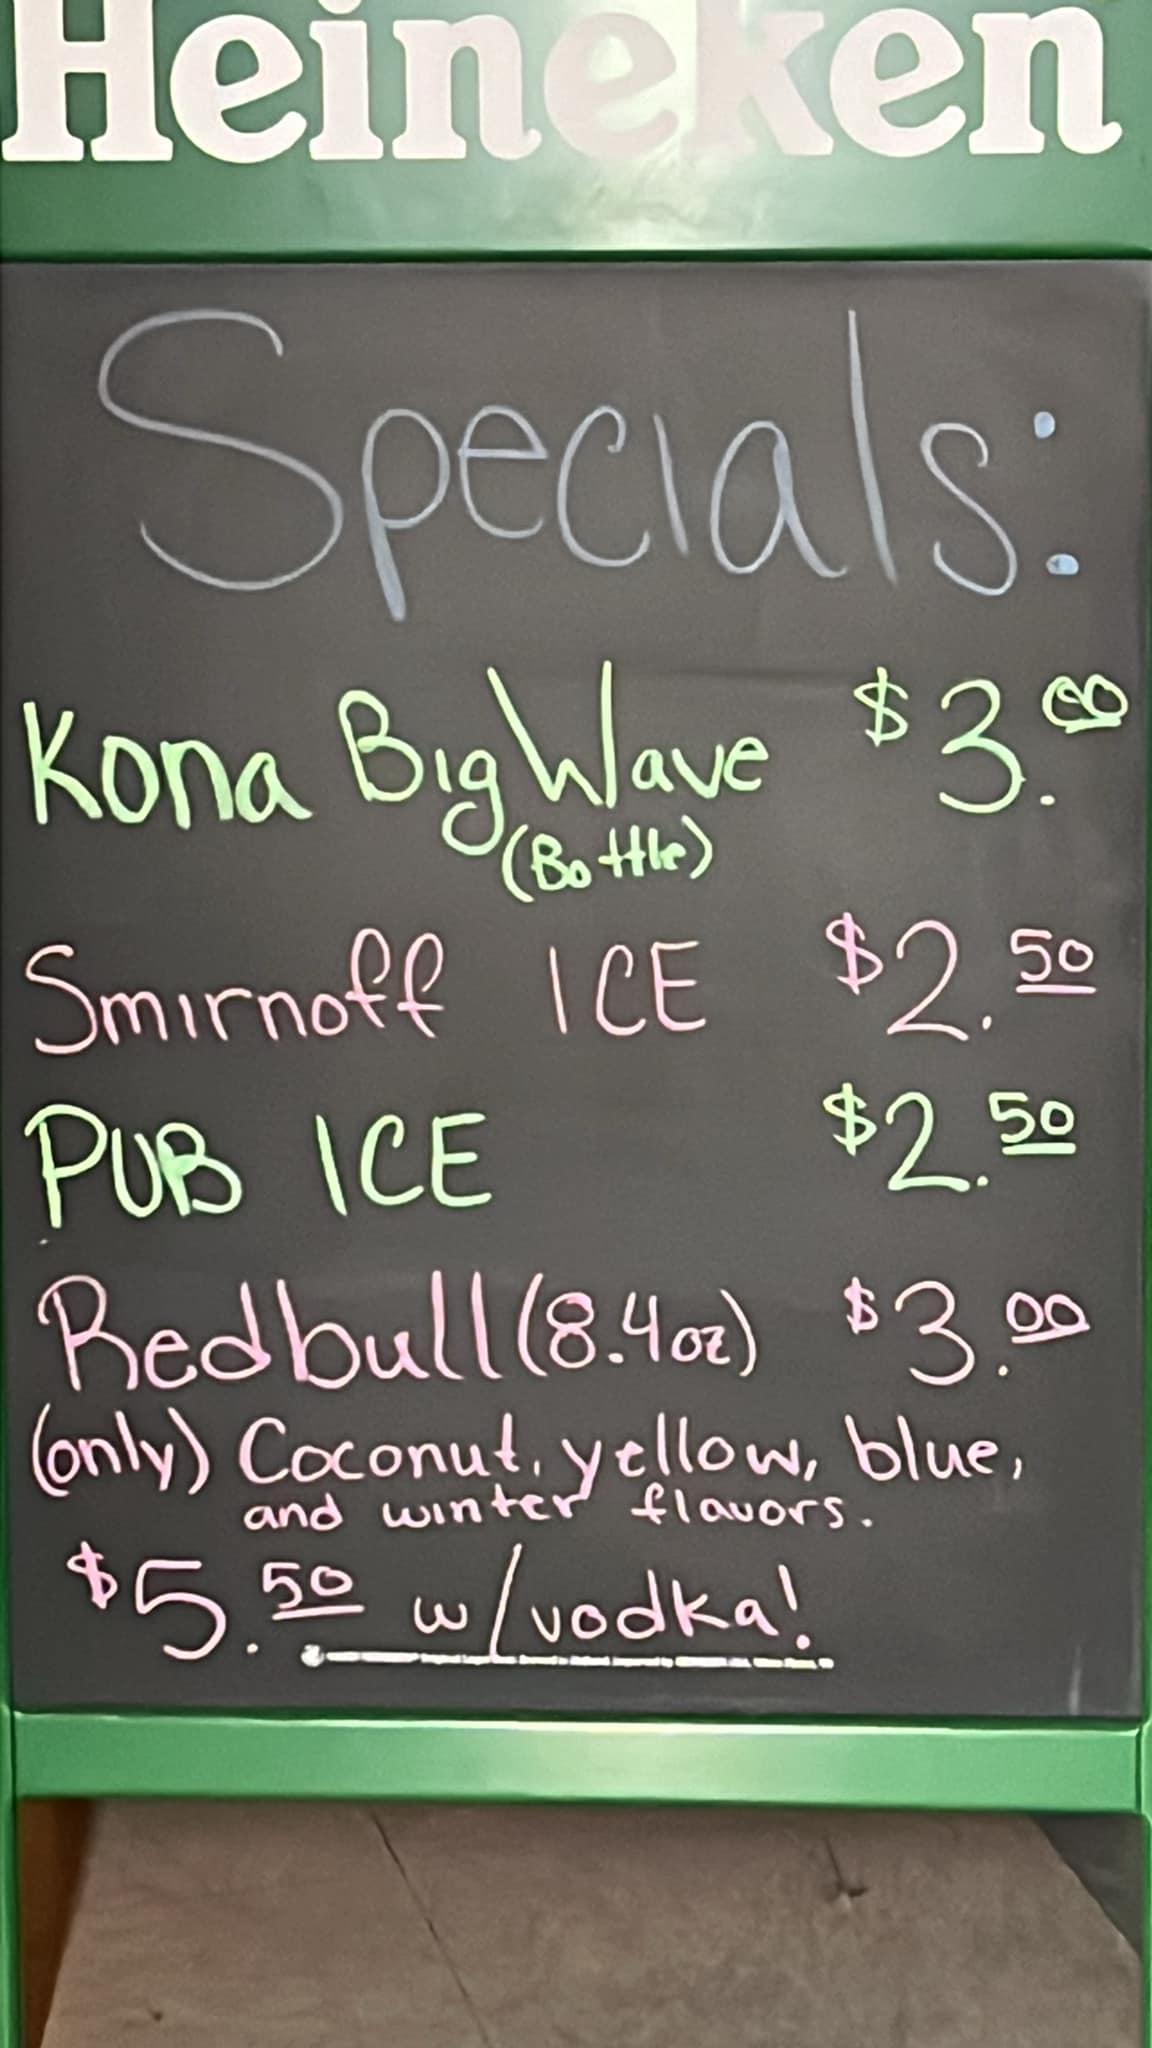 Heineken
Specials:
Kona Big Wave $3.00
(Bottle)
Smirnoff ICE $2.50
PUB ICE $2.50
Redbull (8.4oz) $3.00
(only) Coconut, yellow, blue,
and winter flavors.
$5.50 w/vodka!